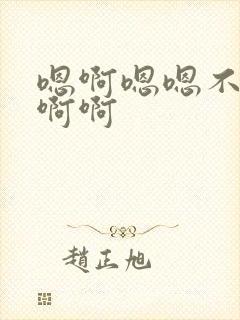 嗯啊嗯嗯不
啊啊
趙正旭